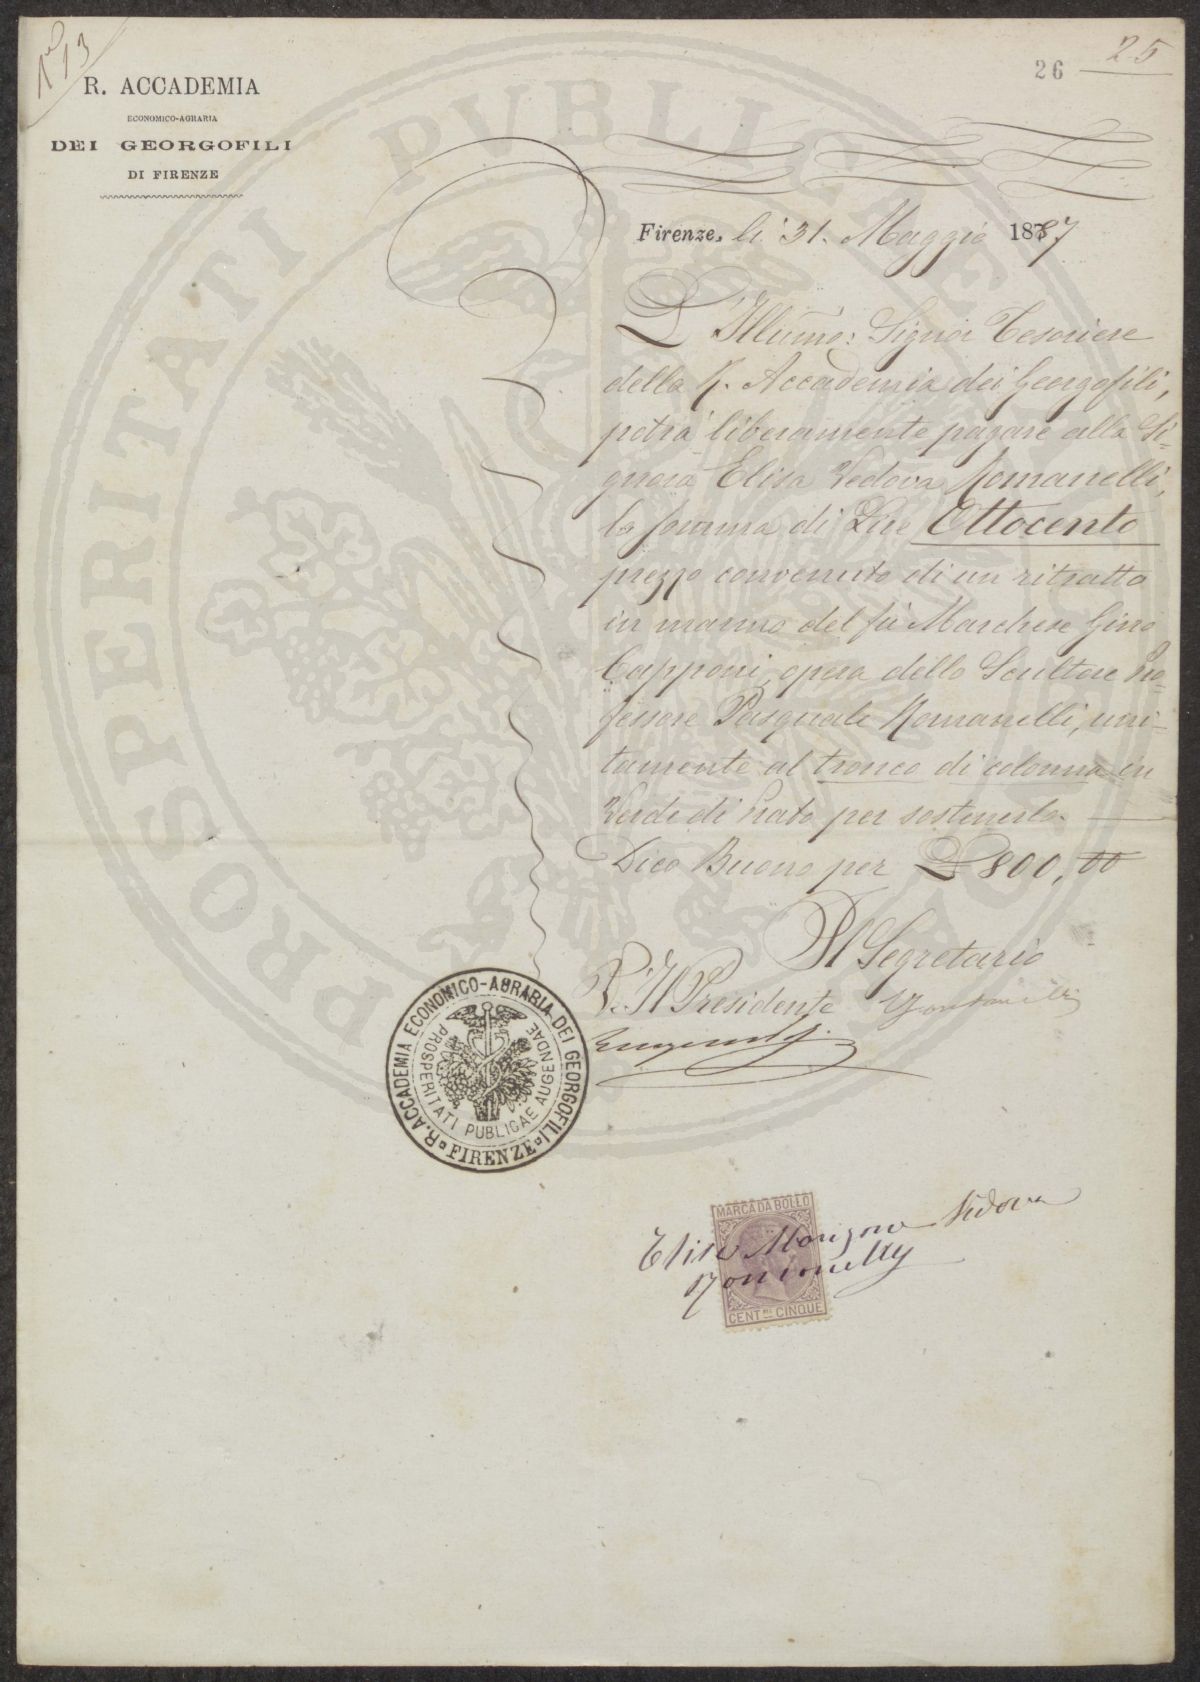 N° 13
R. ACCADEMIA
ECONOMICO-AGRARIA
DEI GEORGOFILI
DI FIRENZE
26
25
Firenze, li 31. Maggio 1887
L'Illumo: Signor Tesoriere
della R. Accademia dei Georgofili,
potrà liberamente pagare alla Si-
gnora Elisa Vedova Romanelli,
la somma di Lire Ottocento
prezzo convenuto di un ritratto
in marmo del fù Marchese Gino
Capponi, opera dello Scultore Pro-
fessore Pasquale Romanelli, uni-
tamente al tronco di colonna in
Verde di Prato per sostenerlo.
Dico Buono per L 800,00
Il Segretario
V. Il Presidente
R. ACCADEMIA ECONOMICO-AGRARIA DEI GEORGOFILI
FIRENZE
PROSPERITATI PUBLICAE AUGENDAE
MARCA DA BOLLO
Elisa Vedova
Romanelly
CENT.MI CINQUE
PROSPERITATI PVBLICAE